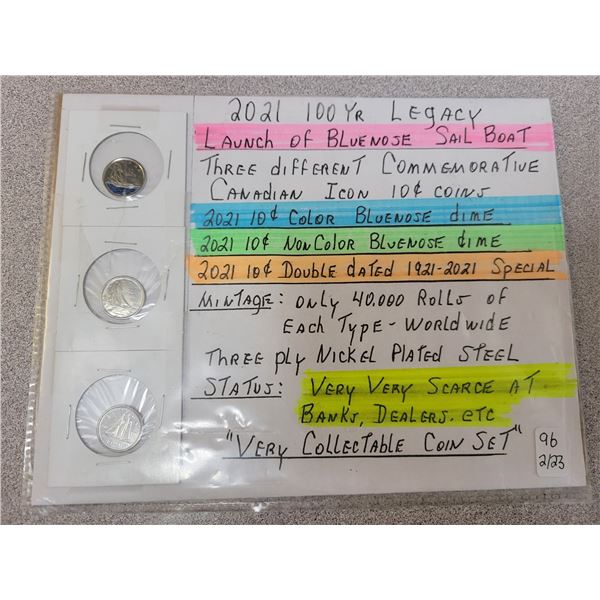 2021 100 Yr Legacy
Launch of Bluenose Sail Boat
Three different Commemorative
Canadian Icon 10¢ coins
2021 10¢ Color Bluenose dime
2021 10¢ NonColor Bluenose dime
2021 10¢ Double dated 1921-2021 Special
Mintage: only 40.000 Rolls of
Each Type - Worldwide
Three ply Nickel Plated Steel
Status: Very Very Scarce at
Banks, Dealers. etc
"Very Collectable Coin Set"
96
2/23